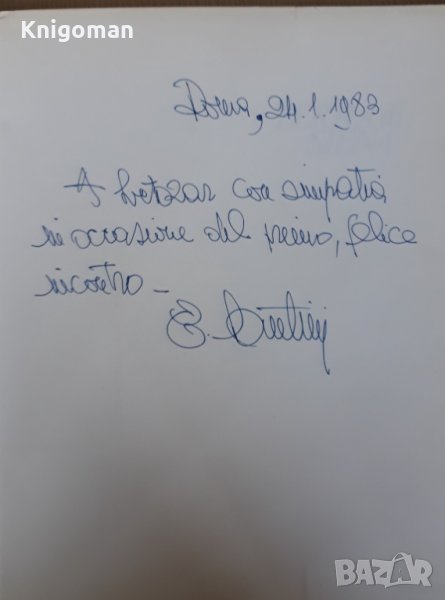 Knigoman
Roma, 24.1.1983
A con simpatia,
in occasione del primo, felice
incontro -
BAZAR